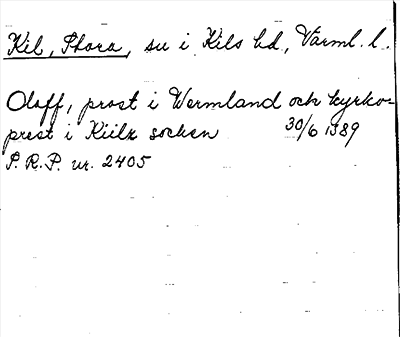 Kil, Stora, su i Kils hd, Värml. l.
Oloff, prost i Wermland och kyrko-
prest i Kiilx socken 30/6 1389
S.R.P. nr. 2405